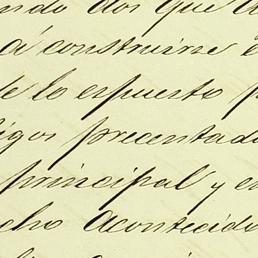 ndo dos que
á construirse
de lo espuesto p
igos precentado
principal y en
cho acontecido